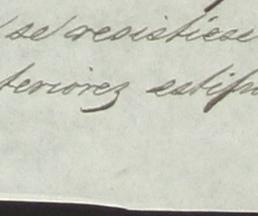 se resistiese
teriorez estip